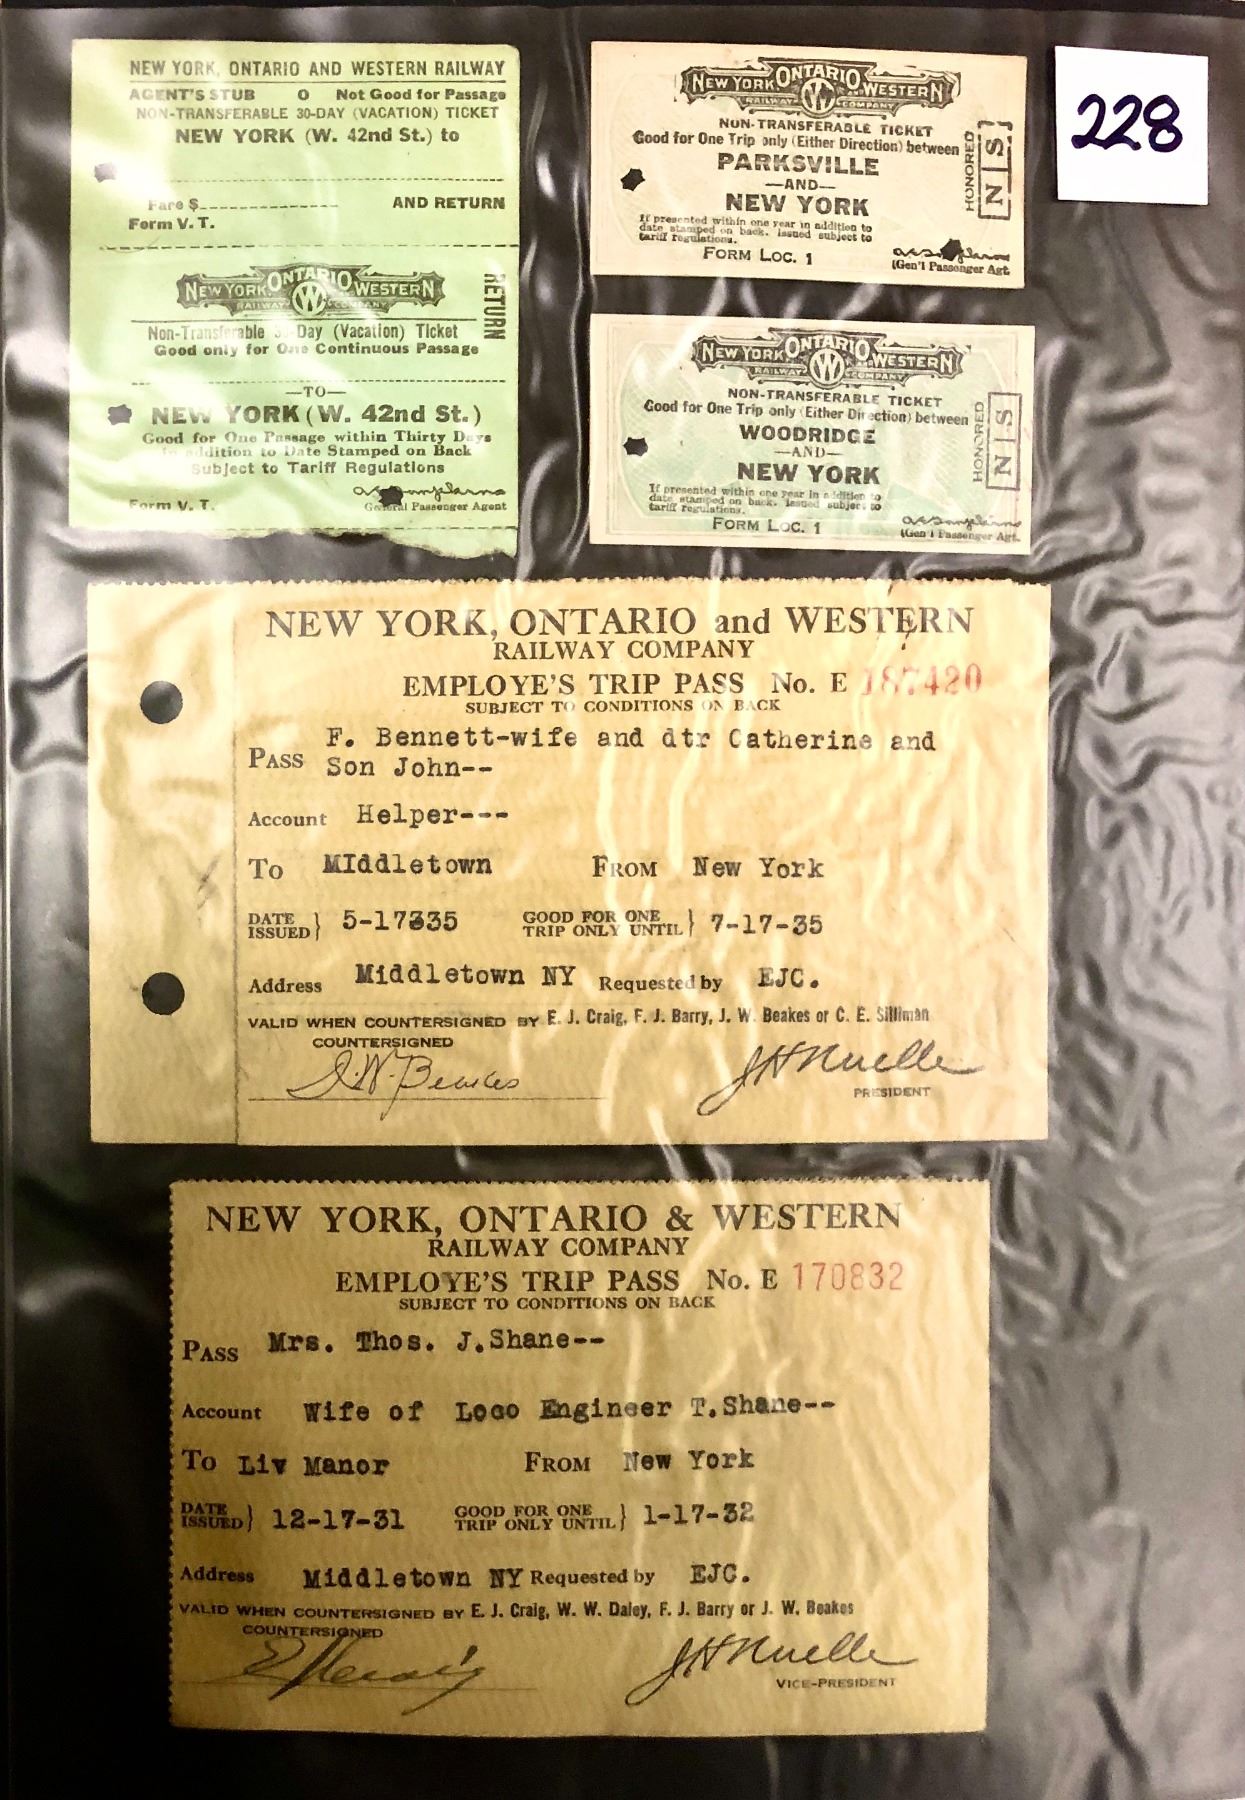 NEW YORK, ONTARIO AND WESTERN RAILWAY
AGENT'S STUB O Not Good for Passage
NON-TRANSFERABLE 30-DAY (VACATION) TICKET
NEW YORK (W. 42nd St.) to
Fare $ AND RETURN
Form V. T.
NEW YORK ONTARIO AND WESTERN
RAILWAY COMPANY
W
RETURN
Non-Transferable 30-Day (Vacation) Ticket
Good only for One Continuous Passage
—TO—
NEW YORK (W. 42nd St.)
Good for One Passage within Thirty Days
in addition to Date Stamped on Back
Subject to Tariff Regulations
Form V. T. General Passenger Agent
NEW YORK ONTARIO AND WESTERN
RAILWAY COMPANY
W
NON-TRANSFERABLE TICKET
Good for One Trip only (Either Direction) between
PARKSVILLE
—AND—
NEW YORK
If presented within one year in addition to
date stamped on back. Issued subject to
tariff regulations.
FORM LOC. 1
(Gen'l Passenger Agt.
HONORED
N S
228
NEW YORK ONTARIO AND WESTERN
RAILWAY COMPANY
W
NON-TRANSFERABLE TICKET
Good for One Trip only (Either Direction) between
WOODRIDGE
—AND—
NEW YORK
If presented within one year in addition to
date stamped on back. Issued subject to
tariff regulations.
FORM LOC. 1
(Gen'l Passenger Agt.
HONORED
N S
NEW YORK, ONTARIO and WESTERN
RAILWAY COMPANY
EMPLOYE'S TRIP PASS No. E 187420
SUBJECT TO CONDITIONS ON BACK
PASS F. Bennett-wife and dtr Catherine and
Son John--
Account Helper---
To MIddletown FROM New York
DATE ISSUED } 5-17335 GOOD FOR ONE TRIP ONLY UNTIL } 7-17-35
Address Middletown NY Requested by EJC.
VALID WHEN COUNTERSIGNED BY E. J. Craig, F. J. Barry, J. W. Beakes or C. E. Silliman
COUNTERSIGNED
J.W. Beakes JHNuelle
PRESIDENT
NEW YORK, ONTARIO & WESTERN
RAILWAY COMPANY
EMPLOYE'S TRIP PASS No. E 170832
SUBJECT TO CONDITIONS ON BACK
PASS Mrs. Thos. J.Shane--
Account Wife of Loco Engineer T.Shane--
To Liv Manor FROM New York
DATE ISSUED } 12-17-31 GOOD FOR ONE TRIP ONLY UNTIL } 1-17-32
Address Middletown NY Requested by EJC.
VALID WHEN COUNTERSIGNED BY E. J. Craig, W. W. Daley, F. J. Barry or J. W. Beakes
COUNTERSIGNED
EJCraig JHNuelle
VICE-PRESIDENT